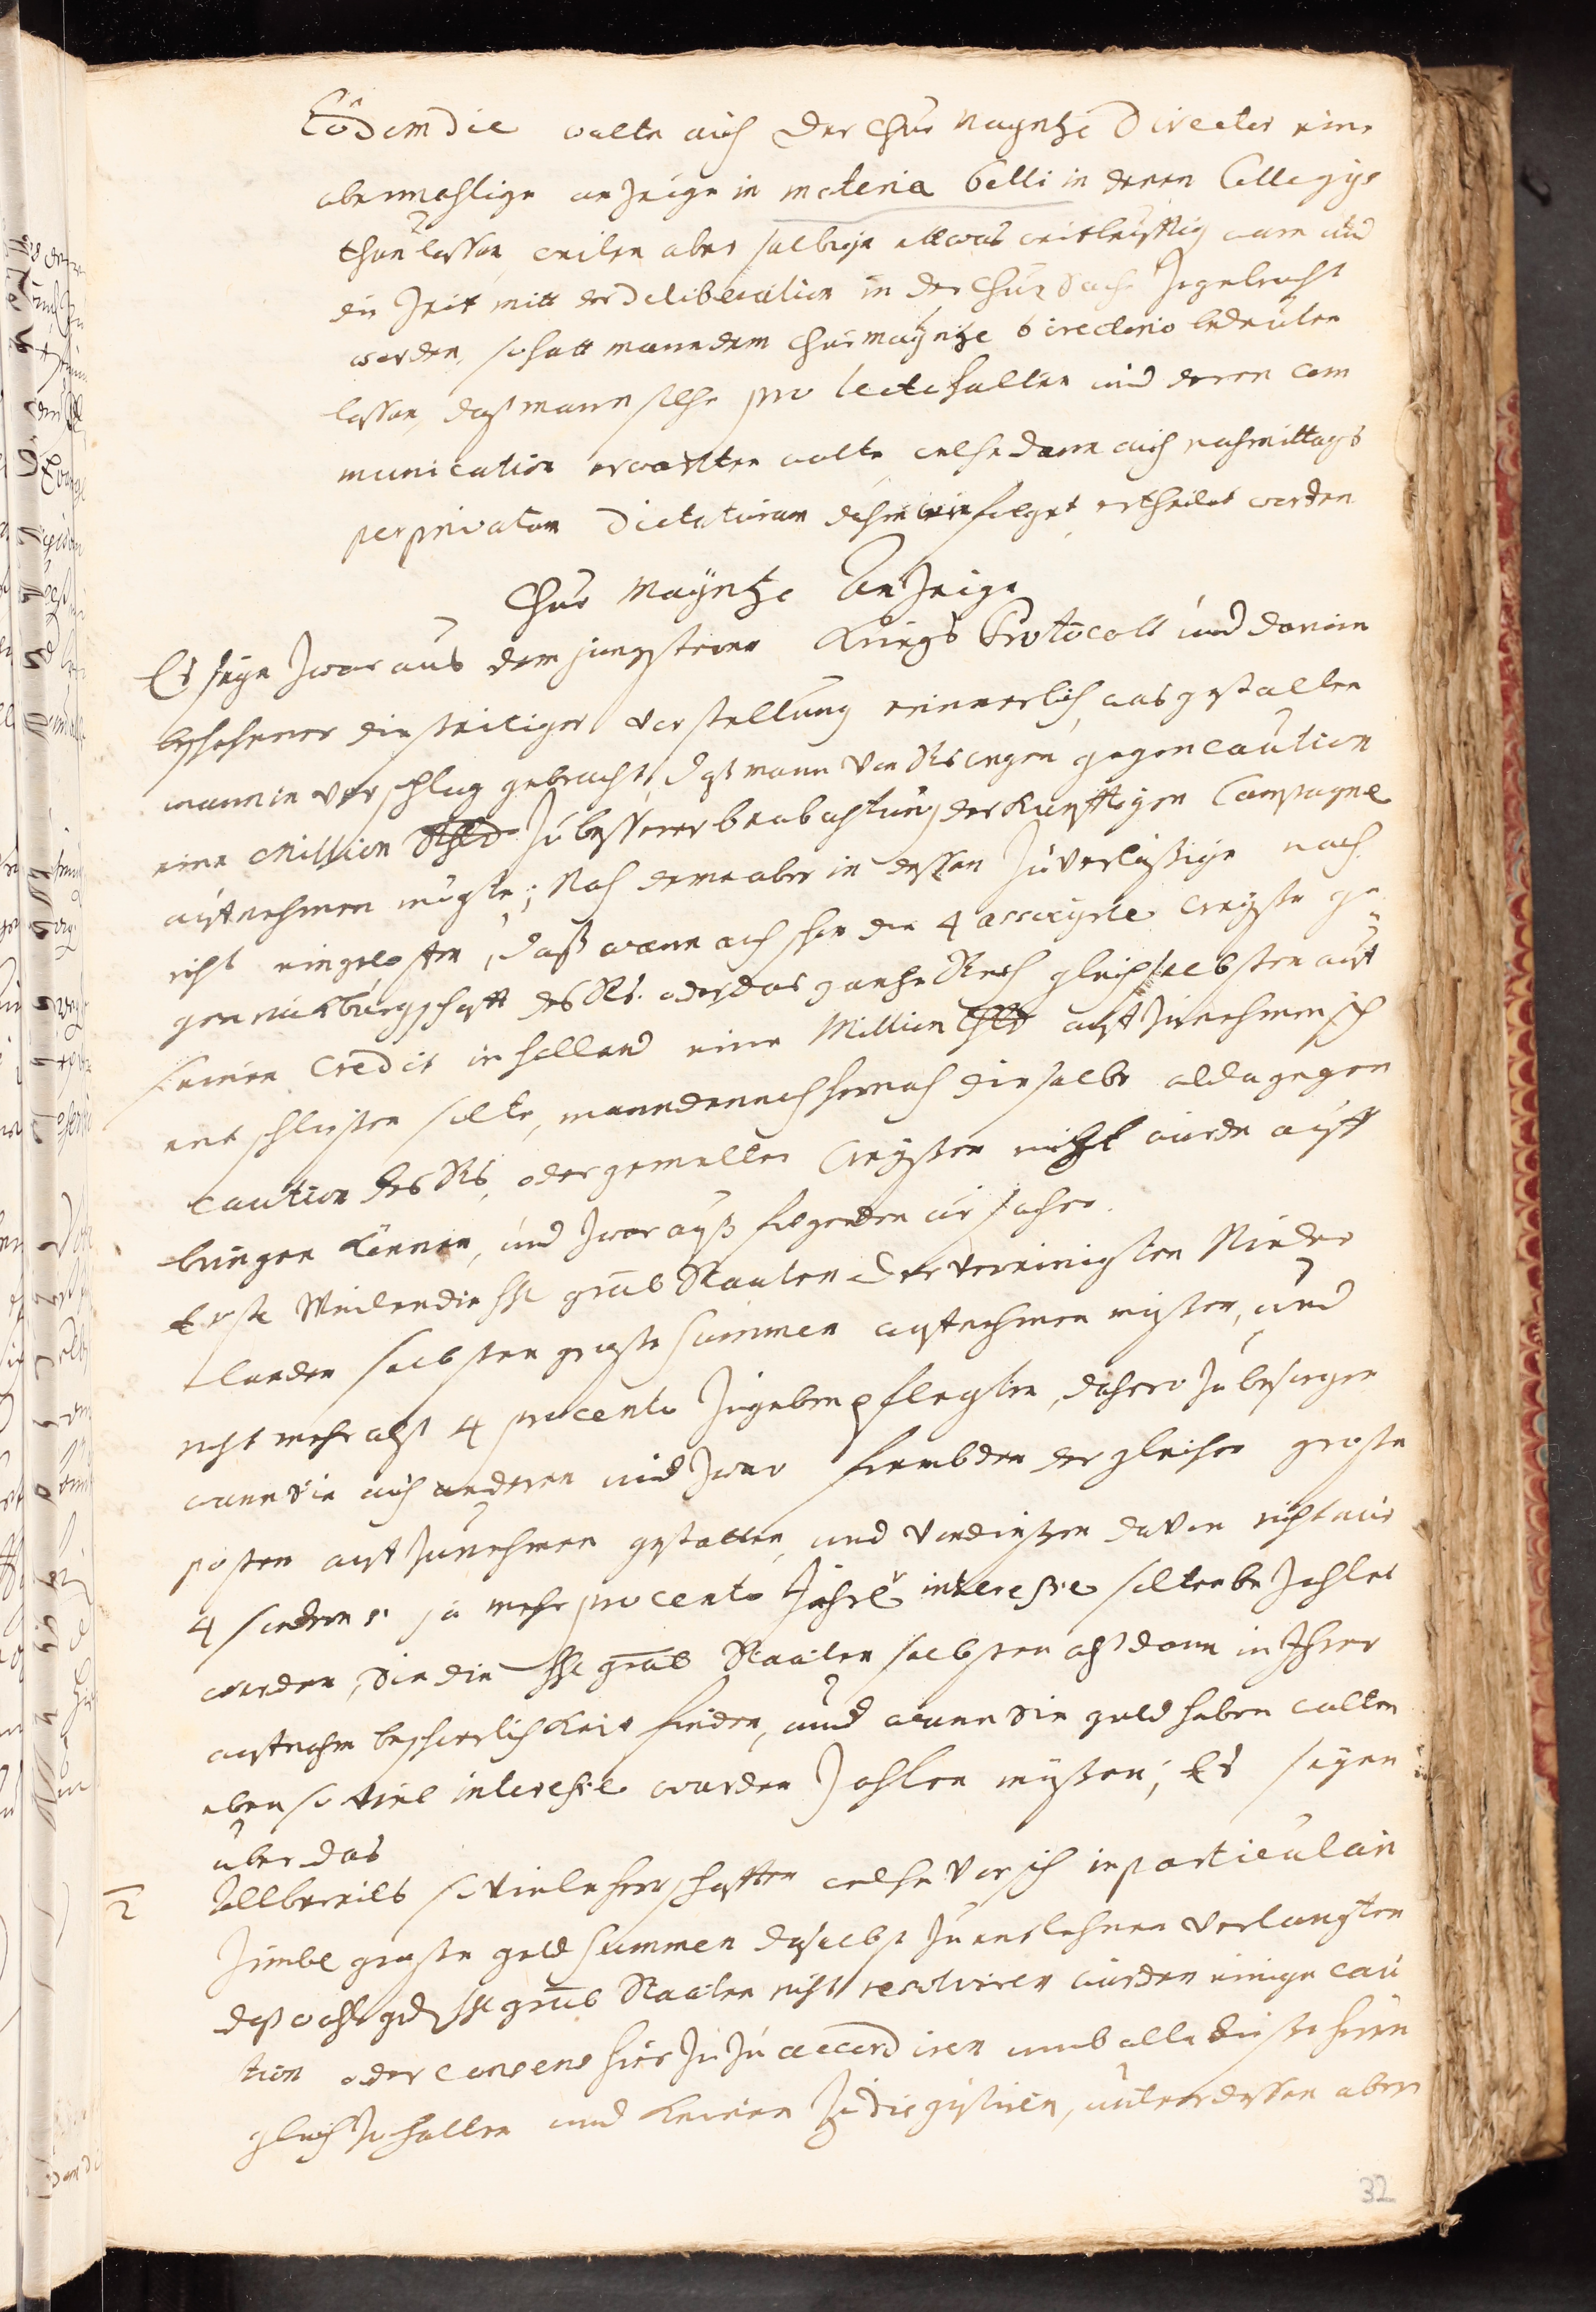 Eôdem die wolte auch der Chur Mayntze Director eine
abermahlige anzeige in materia belli in denen Collegÿs
thun lassen, weilen aber selbige etwas weitleüfftig ware und
die Zeit mitt der deliberation in der Chur Sache zugebracht
worden, so hatt mann dem Chur mayntze Directorio bedeuten
lassen, daß mann solche pro lecto halten und deren com
munication erwartten wolte, welche dann auch nachmittags
per privatam Dictaturam dahin wie folget, ertheilet worden
Chur Mayntze Anzeige
Es seye zwar aus dem jüngsteren Kriegs Protocoll und darinn
beschehener dießeitiger vorstellung erinnerlich, was gestalten
mann in vorschlag gebracht, daß mann von Rs wegen gegen Caution
eine Million zu besserer beobachtung der Kunfftigen Campagne
auffnehmen mögte; Nach deme aber in dessen zuverläßige nach
richt eingeloffen, daß wann auch schon die 4 associirte Creyße ge
gen rückbürgschafft des Rs. oder das gantze Reich gleich selbsten auff
seinen Credit in Holland eine Million auffzunehmen sich
entschließen solte, mann dennoch hernach dieselbe alda gegen
caution des Rs, oder gemelter Creyßen nicht würde auff
bringen können, und zwar auß folgenden ursachen.
Erstl. Weilen die HH. gñal Staaten der vereinigten Nieder
landen selbsten große summen auffnehmen müßten, und
nicht mehr alß 4 pro cento zugeben pflegten, dahero zu besorgen
wann Sie auch anderen und zwar frembden dergleichen große
posten auffzunehmen gestatten, und von dießen davon nicht nur
4 sondern 5. ja mehr pro cento Jährl. interesse solten bezahlet
werden, Sie die HH. gñal Staaten selbsten alß dann in Ihrer
auffnahm beschwerlichkeit finden, und wann Sie geld haben wolten
eben so viel interesse wurden zahlen müßen; Es seyen
über das
2 Allbereits so viele herrschafften welche vor sich in particulari
zimbl. große geld summen daselbst zu entlehnen verlangten
daß wohl ged. HH. gñal Staaten nicht resolviren würden einige cau
tion oder consens hierzu zu accordiren umb alle dieße herren
gleich zu halten und keinen zu disgustiren, unterdessen aber
32